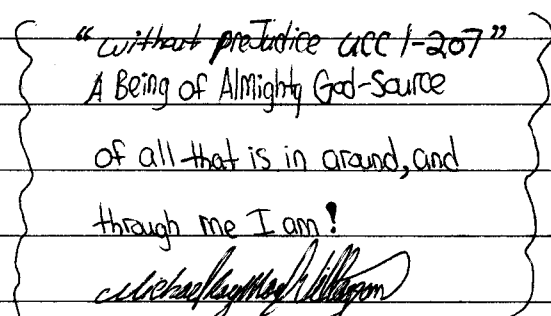 "without preJudice ucc 1-207"
A Being of Almighty God-Source
of all that is in around, and
through me I am!
Michael